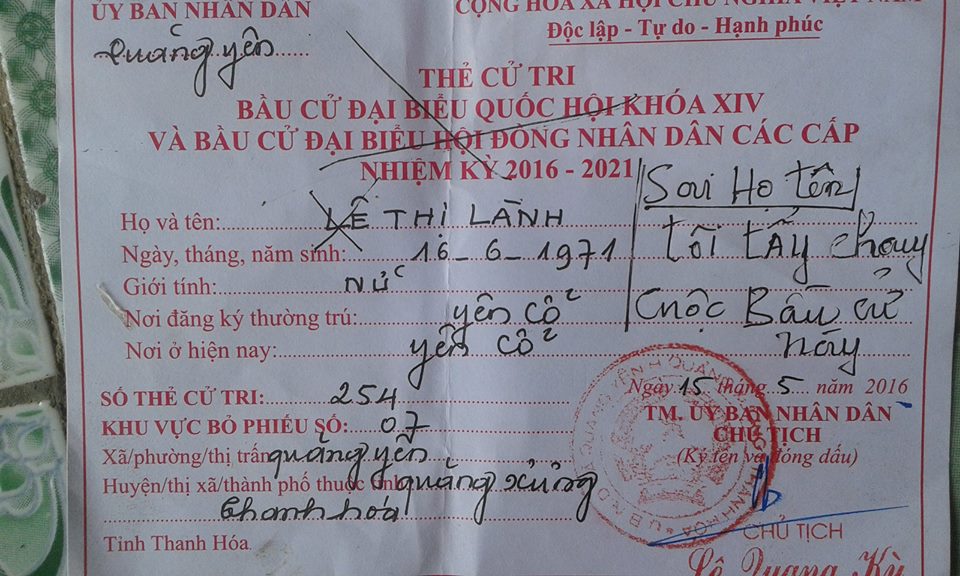 ỦY BAN NHÂN DÂN
CỘNG HÒA XÃ HỘI CHỦ NGHĨA VIỆT NAM
Quảng yên
Độc lập - Tự do - Hạnh phúc
THẺ CỬ TRI
BẦU CỬ ĐẠI BIỂU QUỐC HỘI KHÓA XIV
VÀ BẦU CỬ ĐẠI BIỂU HỘI ĐỒNG NHÂN DÂN CÁC CẤP
NHIỆM KỲ 2016 - 2021
Sai Họ tên
Họ và tên: LÊ THỊ LÀNH
tôi tẩy chay
Ngày, tháng, năm sinh: 16-6-1971
Giới tính: nữ
cuộc Bầu cử
Nơi đăng ký thường trú: yên cô 2
này
Nơi ở hiện nay: yên cô 2
Ngày 15 tháng 5 năm 2016
SỐ THẺ CỬ TRI: 254
TM. ỦY BAN NHÂN DÂN
KHU VỰC BỎ PHIẾU SỐ: 07
CHỦ TỊCH
Xã/phường/thị trấn quảng yên
(Ký tên và đóng dấu)
Huyện/thị xã/thành phố thuộc tỉnh quảng xương
thanh hóa
CHỦ TỊCH
Tỉnh Thanh Hóa.
Lê Quang Kỳ